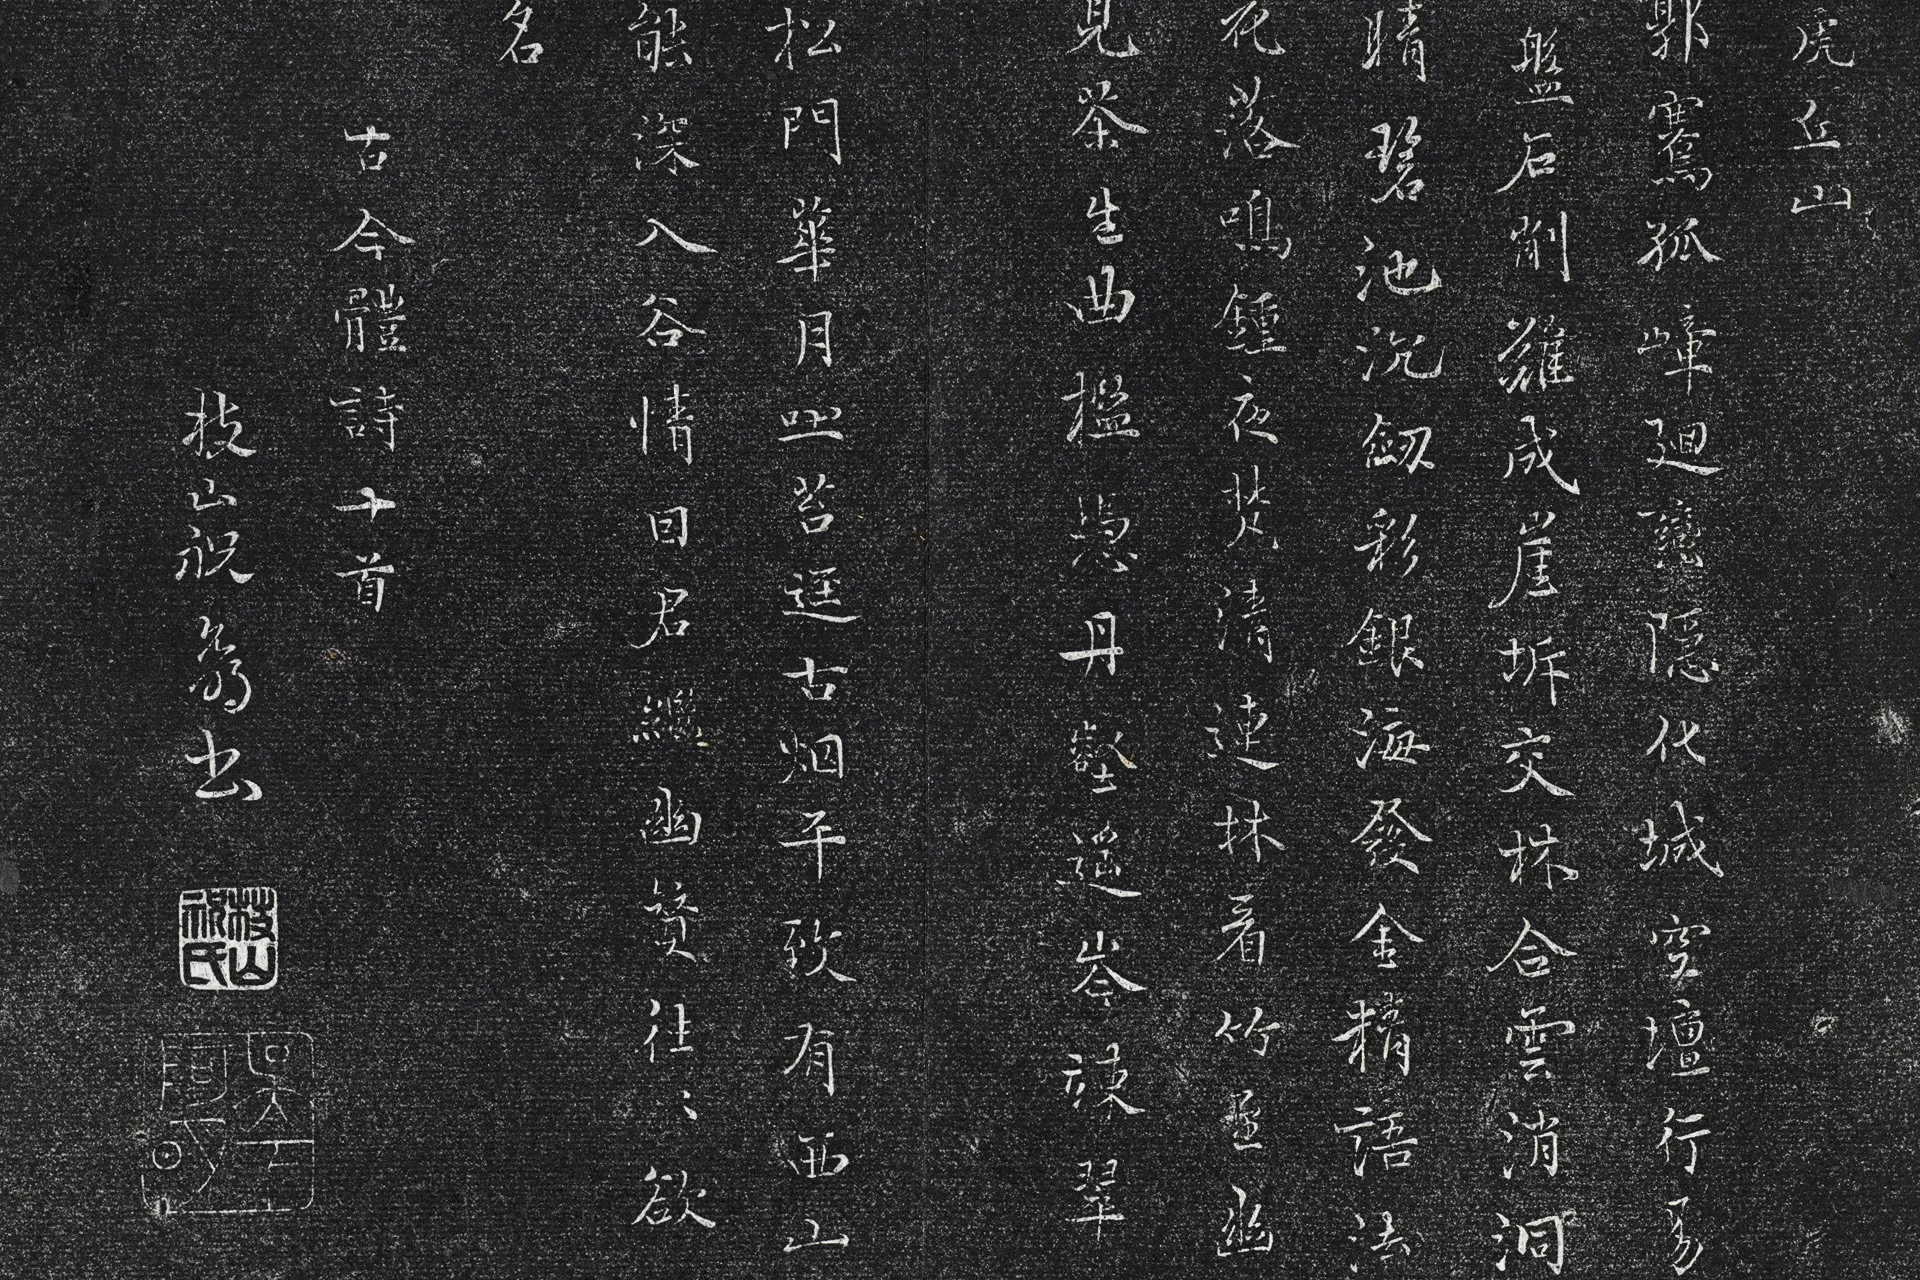 虎丘山
郭騫孤峰迴甕隱化城空壇行易
盤石削難成崖坼交株合雲消洞
晴碧池沉劔彩銀海發金精語法
花落鳴鍾夜梵清連林看竹並幽
見茶生曲檻憑丹壑遥岑竦翠
松門華月照苔逕古烟平致有西山
能深入谷情因君繼幽贊往〻欲
名
古今體詩十首
枝山祝翁書
枝山祝氏